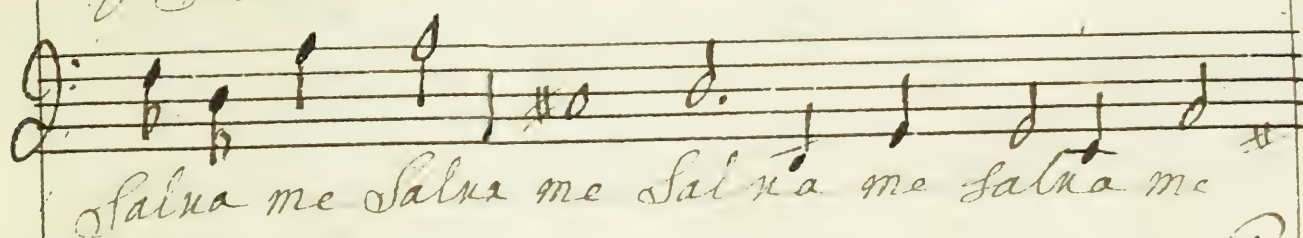 Salua me Salua me Salua me salua me